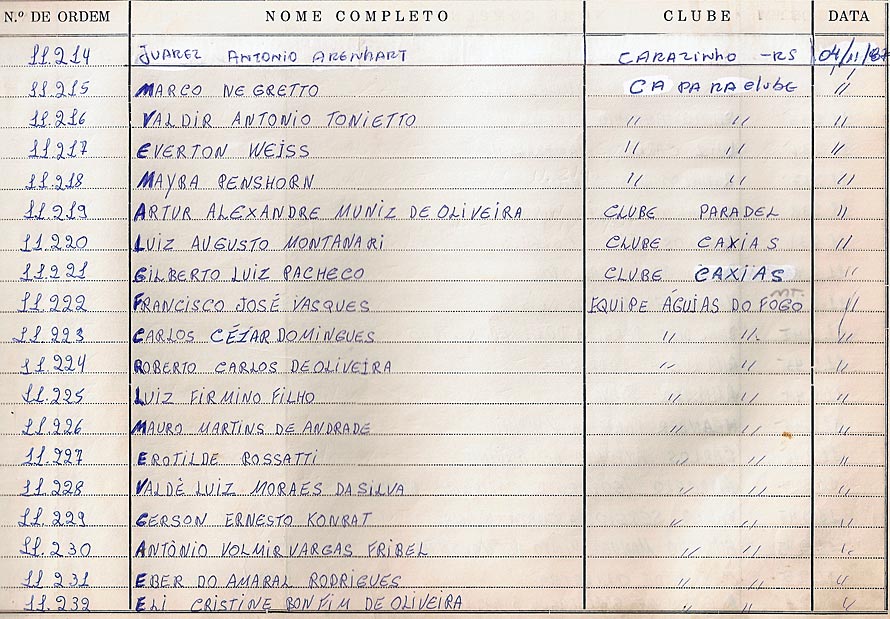 N.º DE ORDEM NOME COMPLETO CLUBE DATA
11.214 JUAREZ ANTONIO ARENHART CARAZINHO -RS 04/11/87
11.215 MARCO NEGRETTO CAPARAclube "
11.216 VALDIR ANTONIO TONIETTO " " "
11.217 EVERTON WEISS " " "
11.218 MAYRA PENSHORN " " "
11.219 ARTUR ALEXANDRE MUNIZ DE OLIVEIRA CLUBE PARADEL "
11.220 LUIZ AUGUSTO MONTANARI CLUBE CAXIAS "
11.221 GILBERTO LUIZ PACHECO CLUBE CAXIAS "
11.222 FRANCISCO JOSÉ VASQUES EQUIPE ÁGUIAS DO FOGO MT. "
11.223 CARLOS CÉZAR DOMINGUES " " "
11.224 ROBERTO CARLOS DE OLIVEIRA " " "
11.225 LUIZ FIRMINO FILHO " " "
11.226 MAURO MARTINS DE ANDRADE " " "
11.227 EROTILDE ROSSATTI " " "
11.228 VALDÈ LUIZ MORAES DA SILVA " " "
11.229 GERSON ERNESTO KONRAT " " "
11.230 ANTÔNIO VOLMIR VARGAS FRIBEL " " "
11.231 EBER DO AMARAL RODRIGUES " " "
11.232 ELI CRISTINE BONFIM DE OLIVEIRA " " "